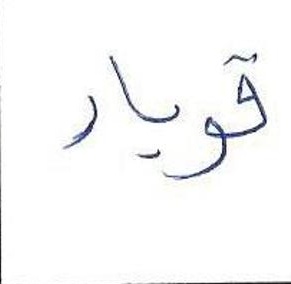 قويار